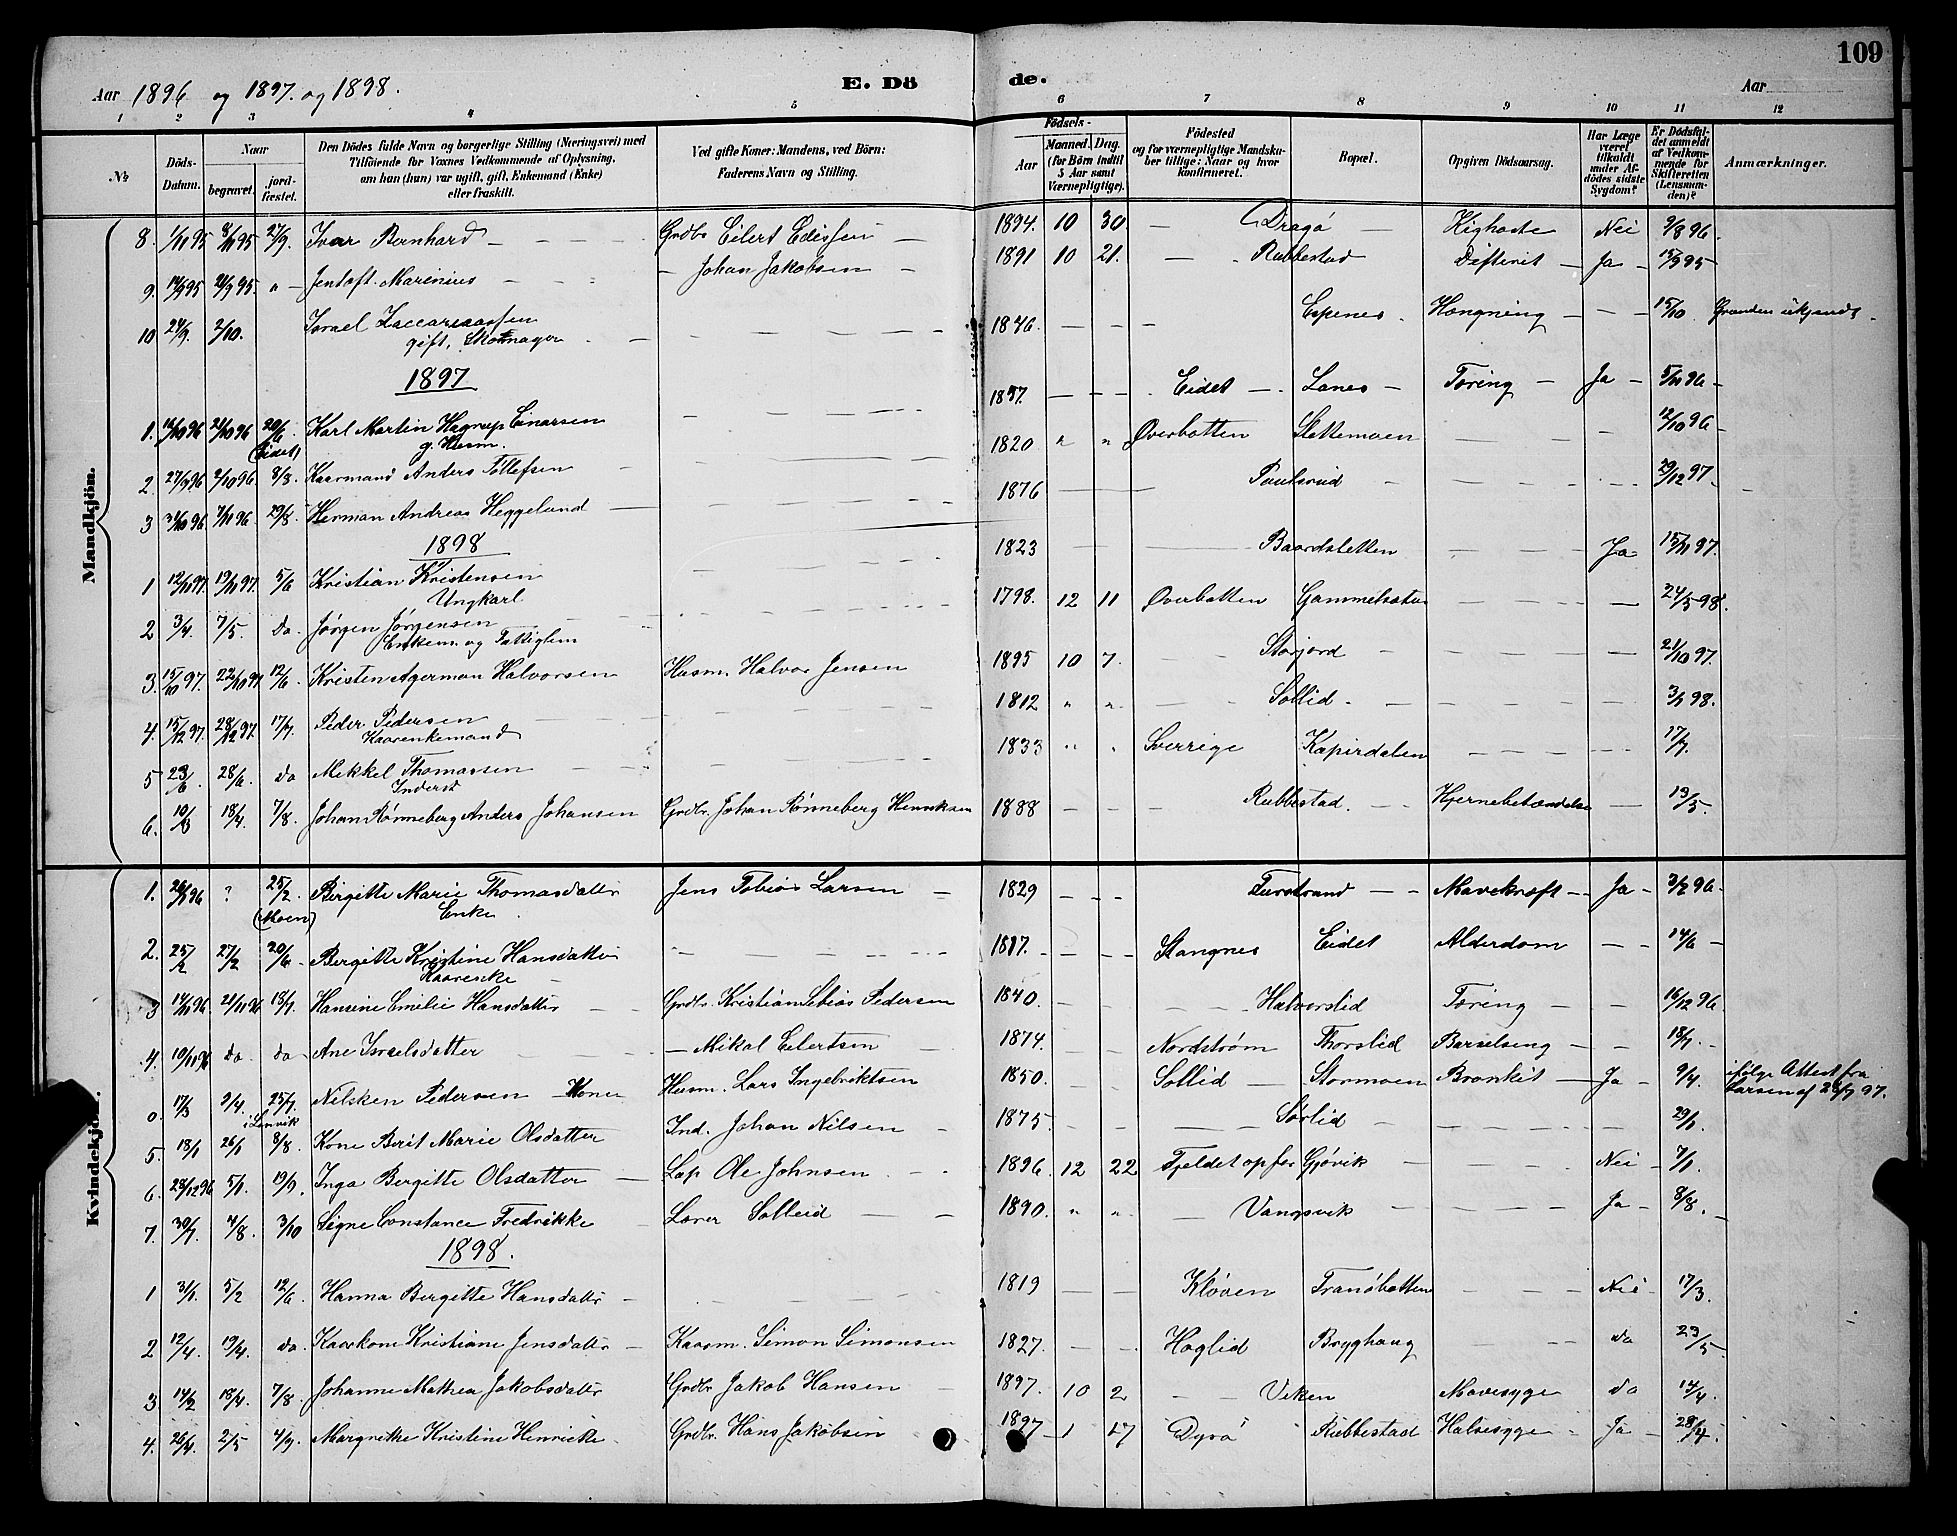 109
Aar 1896 og 1897. og 1898.
E. Dö de.
Aar
1 2 3 4 5 6 7 8 9 10 11 12
№
Döds-Datum.
Naar
begravet.
jord-fæstet.
Den Dödes fulde Navn og borgerlige Stilling (Næringsvei) med
Tilföiende for Voxnes Vedkommende af Oplysning,
om han (hun) var ugift, gift, Enkemand (Enke)
eller fraskilt.
Ved gifte Koner: Mandens, ved Börn:
Faderens Navn og Stilling.
Födsels-
Aar
Maaned. Dag.
(for Börn indtil
5 Aar samt
Værnepligtige).
Födested
og for værnepligtige Mandska-
ber tillige: Naar og hvor
konfirmeret.
Bopæl.
Opgiven Dödsaarsag.
Har Læge
været
tilkaldt
under Af-
dödes sidste
Sygdom?
Er Dödsfal-
det anmeldt
af Vedkom-
mende for
Skifteretten
(Lensman-
den)?
Anmærkninger.
Mandkjön.
8. 1/11 95 8/11 95 27/9. Ivar Bernhard Grdbr Eilert Edissen 1894. 10 30. Dragö Kighoste Nei 9/8 96.
9. 14/9 95 20/9 95. " Jentoft Marinius Johan Jakobsen 1891 10 21. Rubbestad Difterit Ja 15/9 95
10 24/9. 2/10. Israel Zaccariassen 1846. Espenes. Hængning 15/10 Grunden ukjendt.
gift, Skomager
1897
1. 14/10 96 21/10 96 20/6. Karl Martin Hagrup Einarsen 1857. Eidet Lanes Tæring Ja 5/11 96
(Eidet) g. Husm.
2. 27/9 96 2/10 96. 8/8. Kaarmand Anders Tollefsen 1820 " " Øverbotten Slettemoen 12/10 96
3 31/10 96 7/11 96. 29/8. Herman Andreas Heggelund 1876 Paulsrud 29/12 97.
1898
1 12/11 97. 19/11 97. 5/6 Kristian Kristensen 1823 Baardsletten Ja 15/11 97.
Ungkarl.
2 3/4. 7/5. do. Jørgen Jørgensen 1798. 12 11 Øverbotten Gammelsæter 24/5 98.
Enkem. og Fattiglem
3. 15/10 97. 22/10 97. 12/6 Kristen Agerman Halvorsen Husm. Halvor Jensen 1895 10 7. Storjord 21/10 97.
4. 15/12 97. 28/12 97. 17/7 Peder Pedersen 1812 " " Sollid. 3/1 98.
Kaarenkemand
5 23/6 28/6. do Mikkel Thomassen 1833 " " Sverrige Kapirdalen 17/7.
Inderst
6. 10/3 18/4. 7/8. Johan Rønneberg Anders Johansen Grdbr. Johan Rønneberg Henriksen 1888 Rubbestad. Hjernebetændelse 13/5.
Kvindekjön.
1. 26/1 96 ? 25/2. Birgitte Marie Thomasdatter Jens Tobias Larsen 1829 Furstrand Mavekræft Ja 3/2 96
(Moen) Enke.
2. 25/2 27/2 20/6. Bergitte Kristine Hansdatter 1817. Stangnes Eidet Alderdom 14/6
Kaarenke
3 14/11 96 21/11 96 18/7. Hansine Emilie Hansdatter Grdbr. Kristian Pedersen 1840. Halvorslid Tæring 16/12 96
4. 10/11 96 do do Ane Israelsdatter Mikal Eilertsen 1874. Nordstrøm Thorslid Barselseng 18/7.
0. 17/3 2/4. 25/7 Nilsken Pedersen Kone Husm. Lars Ingebriktsen 1850. Sollid Stormoen Bronkit Ja 9/4. ifølge Attest fra
i Lenvik Larsen af 28/7 97.
5. 18/1 26/1 8/8. Kone Berit Marie Olsdatter Ind. Johan Nilsen 1875 Sørlid 29/1
6. 28/12 96 5/1. 19/9. Inga Bergitte Olsdatter Lap Ole Johnsen 1896. 12 22 Fjeldet opfor Gjøvik Nei 7/1.
7. 30/7 4/8. 3/10 Signe Constance Fredrikke Lærer Solleid 1890. " " Vangsvik Ja 8/8.
1898.
1 31/1. 5/2 12/6 Hanna Bergitte Hansdatter 1819 Kløven Tranöbotten Nei 17/3.
2 12/4. 19/4. do. Kaarkone Kristiane Jensdatter Kaarm. Simon Simonsen 1827. Høglid Bryghaug do 23/5
3 14/2 18/4. 7/8. Johanne Mathea Jakobsdatter Grdbr Jakob Hansen 1897. 10 2 Viken Mavesyge do 14/4
4. 26/4. 2/5 4/9. Margrethe Kristine Henrikke Grdbr. Hans Jakobsen 1897 1 17 Dyrö Rubbestad Halssyge Ja 28/4.